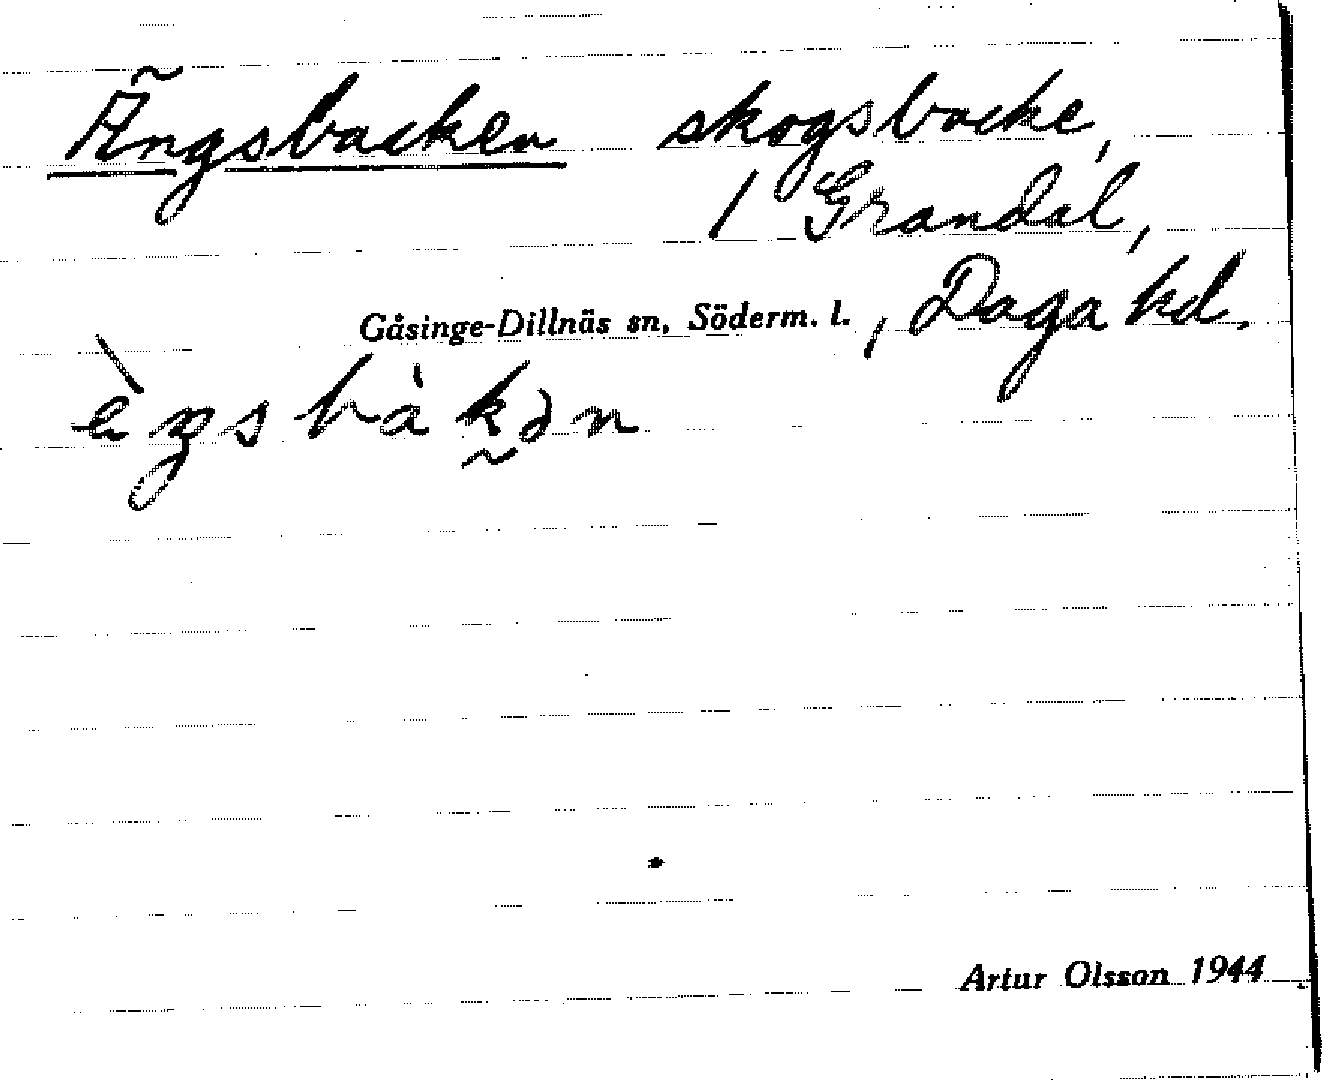 Ängsbacken skogsbacke,
1 Grandal,
Gåsinge-Dillnäs sn, Söderm. l., Daga hd.
Artur Olsson 1944